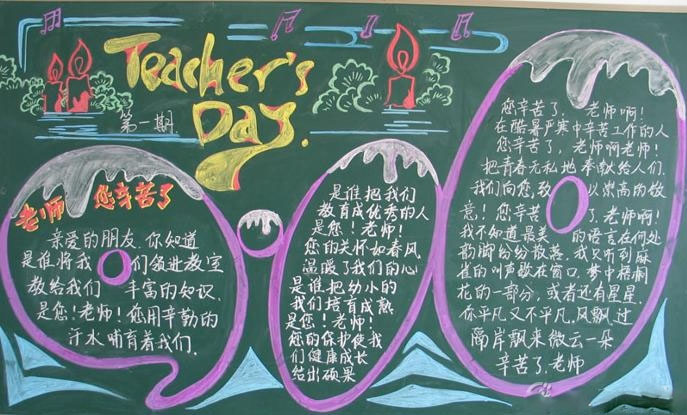 Teacher's
Day.
第一期.
老师 您辛苦了
亲爱的朋友.你知道
是谁将我们领进教室
教给我们丰富的知识.
是您!老师!您用辛勤的
汗水哺育着我们.
是谁把我们
教育成优秀的人
是您!老师!
您的关怀如春风
温暖了我们的心
是谁把幼小的
我们培育成熟
是您!老师!
您的保护使我
们健康成长
结出硕果
您辛苦了,老师啊!
在酷暑严寒中辛苦工作的人
您辛苦了,老师啊老师!
把青春无私地奉献给人们.
我们向您,致以崇高的敬
意!您辛苦了.老师啊!
我不知道最美的语言在何处
韵脚纷纷散落.我又听到麻
雀的叫声歇在窗口.梦中梧桐
花的一部分,或者还有星星.
你平凡又不平凡.风飘过
隔岸飘来微云一朵
辛苦了.老师